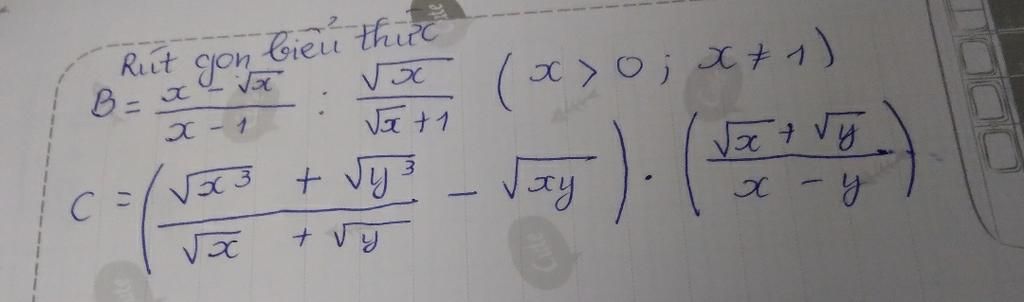 Rút gọn biểu thức
B = \frac{x - \sqrt{x}}{x - 1} : \frac{\sqrt{x}}{\sqrt{x} + 1} ( x > 0 ; x ≠ 1 )
C = \left( \frac{\sqrt{x^3} + \sqrt{y^3}}{\sqrt{x} + \sqrt{y}} - \sqrt{xy} \right) . \left( \frac{\sqrt{x} + \sqrt{y}}{x - y} \right)